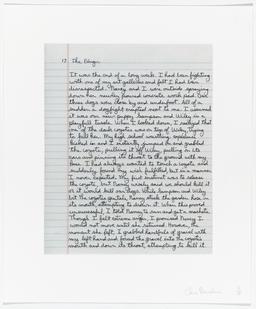 17 The Danger
It was the end of a long week. I had been fighting
with one of my art galleries and felt I had been
disrespected. Nancy and I were outside spraying
down our newly poured concrete work pad. Our
three dogs were close by and underfoot. All of a
sudden a dogfight erupted next to me. I assumed
it was our new puppy, Sampson and Wiley in a
playful tussle. When I looked down, I realized that
one of the dark coyotes was on top of Wiley, trying
to kill her. My high school wrestling experience
kicked in and I instantly jumped on and grabbed
the coyote, pulling it off Wiley, pulling on its
ears and pinning its throat to the ground with my
knee. I had always wanted to touch a coyote and
suddenly found my wish fulfilled but in a manner
I never expected. My first instinct was to release
the coyote, but Nancy wisely said we should kill it
or it would kill our dogs. While Sampson and Wiley
bit the coyotes genitals, Nancy stuck the garden hose in
its mouth, attempting to drown it. When this proved
unsuccessful, I told Nancy to run and get a machete.
Though I felt extreme anger, I promised Nancy I
would not move until she returned. However, the
moment she left, I grabbed handfuls of gravel with
my left hand and forced the gravel into the coyotes
mouth and down its throat, attempting to kill it.